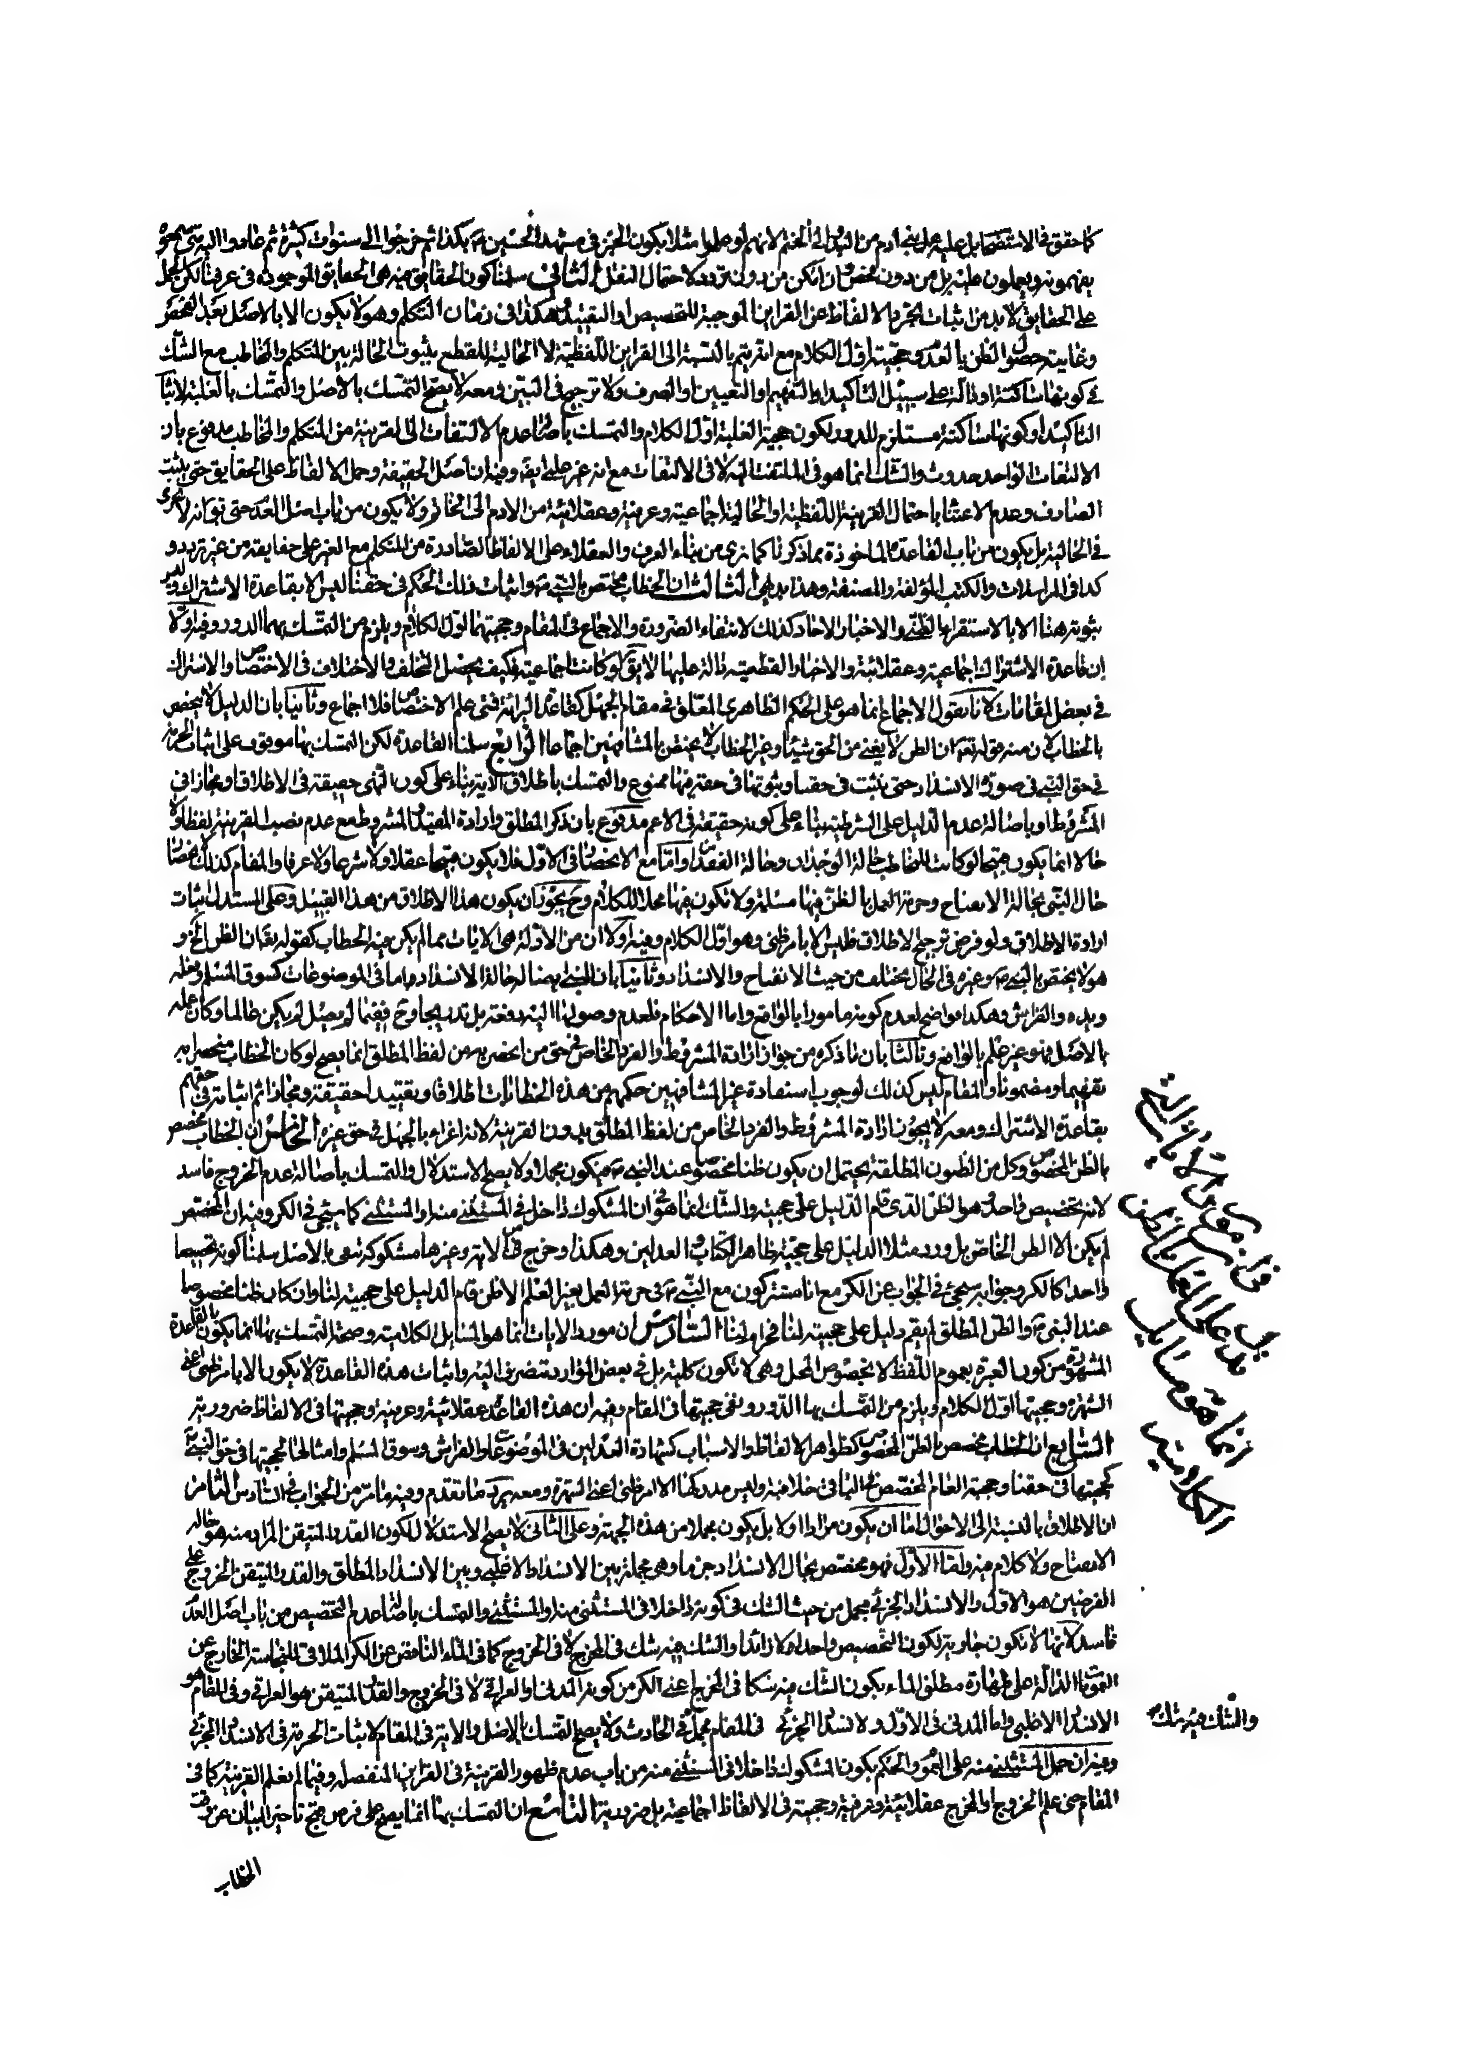 كما حقق في الاستصحاب بل عليه عمل بني آدم من الى الختم لانهم لو علموا مثلا بكون الحرز في مشهد الحسين ع بكذا ثم خرجوا الى سنوات كثيرة ثم عادوا اليه
يفهمونه ويعملون عليه بل من دون من دون تردد لاحتمال النقل الثاني سلمنا كون الحقايق فيه هي الحقايق الموجودة في عرفنا لكن الحمل
على الحقايق لا بد من اثبات تجرد الالفاظ عن القراين الموجبة للتخصيص او التقييد هكذا في زمان التكلم وهو لا يكون الا بالاصل بعد الفحص
وغايته حصول الظن بالعدم وحجيته اول الكلام مع انه يتم بالنسبة الى القراين اللفظية لا الحالية للقطع بثبوت الحالة بين المتكلم والمخاطب مع الشك
في كونها ساكتة او دالة على سبيل التاكيد او التفهيم او التعيين او الصرف ولا ترجيح في البين فمعه لا يصح التمسك بالاصل والتمسك بالغلبة لاثبات
التاكيد او كونها ساكتة مستلزم للدور لكون حجية الغلبة اول الكلام والتمسك باصالة عدم الالتفات الى القرينة من المتكلم والمخاطب مدفوع بان
الالتفات الواحد حدوث والشك انما هو في الملتفت اليه لا في الالتفات مع انه وفيه ان اصل الحقيقة وحمل الالفاظ على الحقايق حتى يثبت
الصارف وعدم الاعتناء باحتمال القرينة اللفظية او الحالية اجماعية وعرفية وعقلائية من الادم الى الخاتم ولا يكون من باب اصل العدم حتى يقال انه لا يجري
في الحالية بل يكون من باب القاعدة الماخوذة مما ذكرنا كما نرى من بناء العرف والعقلاء على الالفاظ الصادرة من المتكلم مع الغير على حقايقه من غير تردد و
كذا في المراسلات والكتب المؤلفة والمصنفة وهذا بديهي الثالث ان الخطاب مختص بالنبي ص واثبات ذلك الحكم في حقنا ليس الا بقاعدة الاشتراك وليس
ثبوته هنا الا بالاستقراء الظني والاخبار الاحاد كذلك لانتفاء الضرورة والاجماع في المقام وحجيتهما اول الكلام ويلزم من التمسك بهما الدور وفيه اولا
ان قاعدة الاشتراك اجماعية وعقلائية والاخبار القطعية دالة عليها لا يق لو كانت اجماعية فكيف يحصل التخلف والاختلاف في الاختصاص والاشتراك
في بعض المقامات لانا نقول الاجماع انما هو على الحكم الظاهري المعلق في مقام الجهل كقاعدة البرائة فمتى علم الاختصاص فلا اجماع وثانيا بان الدليل لا يختص
بالخطاب لان منه قوله تعالى ان الظن لا يغني من الحق شيئا وغير الخطاب لا يختص بالمشافهين اجماعا الرابع سلمنا القاعدة لكن التمسك بها موقوف على اثبات الحرمة
في حق النبي في صورة الانسداد حتى يثبت في حقنا وثبوتها في حقه فيها ممنوع والتمسك باطلاق الاية بناء على كون النهي حقيقة في الاطلاق ومجازا في
المشروط او باصالة عدم الدليل على الشرطية بناء على كونه حقيقة في الاعم مدفوع بان ذكر المطلق وارادة المقيد المشروط مع عدم نصب القرينة لفظا ولا
حالا انما يكون قبيحا لو كانت للمخاطب حالة الوجدان وحالة الفقدان واما مع الانحصار في الاول فلا يكون قبيحا عقلا ولا شرعا ولا عرفا والمقام كذلك
حال النبي بحالة الانفتاح وحرمة العمل بالظن فيها مسلمة ولا تكون فيها محلا للكلام وح يجوز ان يكون هذا الاطلاق من هذا القبيل وعلى المستدل اثبات
ارادة الاطلاق ولو فرض ترجيح الاطلاق فليس الا بامر ظني وهو اول الكلام وفيه اولا ان من الادلة هي الايات مما لم يكن فيه الخطاب كقوله تعالى ان الظن الخ و
هو لا يختص بالنبي ص وغيره في الحال يختلف من حيث الانفتاح والانسداد وثانيا بان النبي ايضا له حالة الانسداد اما في الموضوعات كسوق المسلم وفعله
ويده والفراش وهكذا فواضح لعدم كونه مامورا بالواقع واما الاحكام فلعدم وصولها اليه دفعة بل تدريجا وح ففيما لم يصل لم يكن عالما وكان عمله
بالاصل فهو غير علم بالواقع وثالثا بان ما ذكره من جواز ارادة المشروط والفرد الخاص في حق من انحصر به من لفظ المطلق انما يصح لو كان الخطاب منحصرا به
تفهيما ومضمونا والمقام ليس كذلك لوجوب استفادة غير المشافهين حكمهم من هذه الخطابات اطلاقا وتقييدا حقيقة ومجازا ثم اثباته في حقهم
بقاعدة الاشتراك ومعه لا يجوز ارادة المشروط والفرد الخاص من لفظ المطلق بدون القرينة لانه اغراء بالجهل في حق غيره الخامس ان الخطاب مخصص
بالظن المخصوص وكل من الظنون المطلقة يحتمل ان يكون ظنا مخصوصا عند النبي ص فيكون مجملا ولا يصح الاستدلال والتمسك باصالة عدم الخروج فاسد
لانه تخصيص واحد وهو الظن الذي قام الدليل على حجيته والشك انما هو في ان المشكوك داخل في المستثنى منه او المستثنى كما سيجئ في الكر وفيه ان المخصص
لم يكن الا الظن الخاص بل ورد مثلا الدليل على حجية ظاهر الكتاب والعدلين وهكذا وخرج من الاية وغيرها مشكوكه تنفى بالاصل سلمنا كونه تخصيصا
واحدا كالكر وجوابه سيجئ في الجواب عن الكر مع انا مشتركون مع النبي ص في حرمة العمل بغير العلم الا ظن قام الدليل على حجيته لنا وان كان ظنا مخصوصا
عند النبي ص والظن المطلق لم يقم دليل على حجيته لنا فحرام لنا السادس ان مورد الايات انما هو المسايل الكلامية وصحة التمسك بها انما يكون بالقاعدة
المشهورة من كون العبرة بعموم اللفظ لا بخصوص المحل وهي لا تكون كلية بل في بعض الموارد تنصرف اليه واثبات هذه القاعدة لا يكون الا بامر ظني اعني
الشهرة وحجيتها اول الكلام ويلزم من التمسك بها الدور ونفي حجيتها في المقام وفيه ان هذه القاعدة عقلائية وعرفية وحجيتها في الالفاظ ضرورية
السابع ان الخطاب مخصص بالظن المخصوص كظواهر الالفاظ والاسباب كشهادة العدلين في الموضوعات والفراش وسوق المسلم وامثالها لحجيتها في حق النبي ص
كحجيتها في حقنا وحجية العام المخصص في الباقي خلافية وليس مدركها الا امر ظني اعني الشهرة ومعه يرد ما تقدم وفيه ما مر من الجواب في السادس الثامن
ان الاطلاق بالنسبة الى الاحوال اما ان يكون مرادا او لا بل يكون مجملا من هذه الجهة وعلى الثاني لا يصح الاستدلال لكون القدر المتيقن المراد منه هو حالة
الانفتاح ولا كلام فيه واما الاول فهو مختص بحال الانسداد جزما وهي مجملة بين الانسداد الاغلبي وبين الانسداد المطلق والقدر المتيقن الخروج على
الفرضين هو الاول والانسداد الجزئي مجمل من حيث الشك في كونه داخلا في المستثنى منه او المستثنى والتمسك باصالة عدم التخصيص من باب اصل العدم
فاسد لانها لا تكون جاوية لكون التخصيص واحدا لا زائدا والشك فيه شك في المخرج لا في الخروج كما في الماء الناقص عن الكر الملاقي للنجاسة الخارج عن
العمومات الدالة على طهارة مطلق الماء بكون الشك فيه شكا في المخرج اعني الكر من كونه المدني او العراقي لا في الخروج والقدر المتيقن هو العراقي وفي المقام هو
الانسداد الاغلبي واما المدني في الاول والانسداد الجزئي في المقام مجمل في الحادث ولا يصح التمسك بالاصل والاية في المقام لاثبات الحرمة في الانسداد الجزئي
وفيه ان حمل المستثنى منه على العموم والحكم بكون المشكوك داخلا في المستثنى منه من باب عدم ظهور القرينة في القراين المنفصلة وفيما لم يعلم القرينة كما في
المقام حتى علم الخروج او المخرج عقلائية وعرفية وحجيته في الالفاظ اجماعية بل ضرورية التاسع ان التمسك بها انما يصح على فرض قبح تاخير البيان عن وقت
الخطاب
فان مورد الايات الدالة
على العمل بالظن
انما هو مسايل
الكلامية
والشك فيه شك